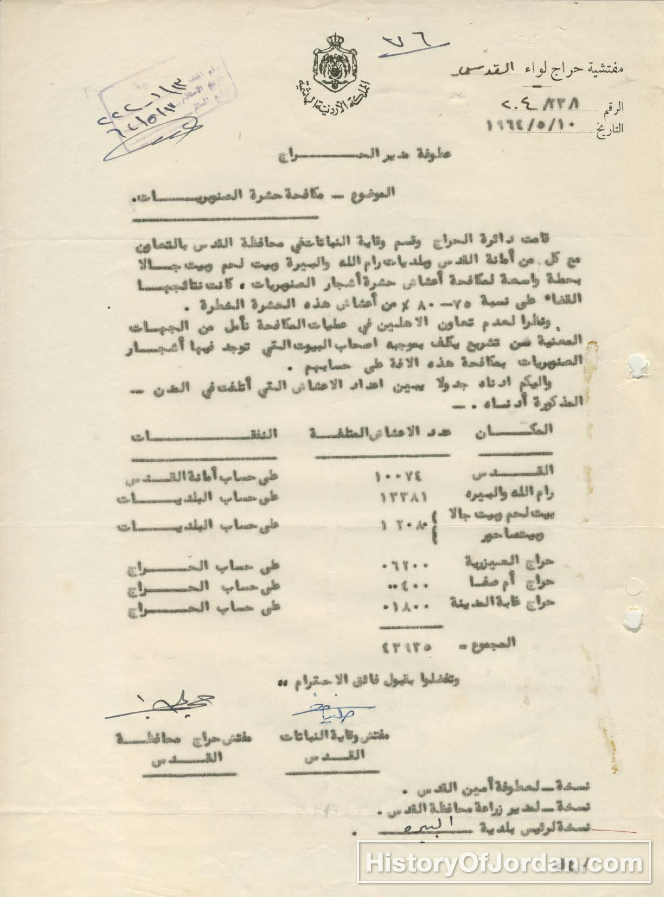 ٧٦
مفتشية حراج لواء القدس
المملكة الأردنية الهاشمية
الرقم ٢٠٤/٢٣٨
التاريخ ١٩٦٤/٥/١٠
عطوفة مدير الحراج
الموضوع - مكافحة حشرة الصنوبريات.
قامت دائرة الحراج وقسم وقاية النباتات في محافظة القدس بالتعاون
مع كل من أمانة القدس وبلديات رام الله والبيرة وبيت لحم وبيت جالا
بحملة واسعة لمكافحة أعشاش حشرة أشجار الصنوبريات، كانت نتائجها
القضاء على نسبة ٧٥-٨٠٪ من أعشاش هذه الحشرة الخطرة.
ونظرا لعدم تعاون الاهلين في عمليات المكافحة نأمل من الجهات
المعنية سن تشريع يكلف بموجبه اصحاب البيوت التي توجد فيها أشجار
الصنوبريات بمكافحة هذه الافة على حسابهم.
واليكم ادناه جدولا يبين اعداد الاعشاش التي أتلفت في المدن -
المذكورة أدناه. -
المكان عدد الاعشاش المتلفة النفقات
القدس ١٠٠٧٤ على حساب أمانة القدس
رام الله والبيره ١٣٣٨١ على حساب البلديات
بيت لحم وبيت جالا
وبيت ساحور } ١٢٠٨٠ { على حساب البلديات
حراج العيزرية ٠٦٢٠٠ على حساب الحراج
حراج أم صفا ٠٠٤٠٠ على حساب الحراج
حراج غابة المدينة ٠١٨٠٠ على حساب الحراج
المجموع = ٤٣٩٣٥
وتفضلوا بقبول فائق الاحترام ،،
مفتش وقاية النباتات مفتش حراج محافظة
القدس القدس
نسخة - لعطوفة أمين القدس.
نسخة - لمدير زراعة محافظة القدس.
نسخة لرئيس بلدية البيره.
HistoryOfJordan.com